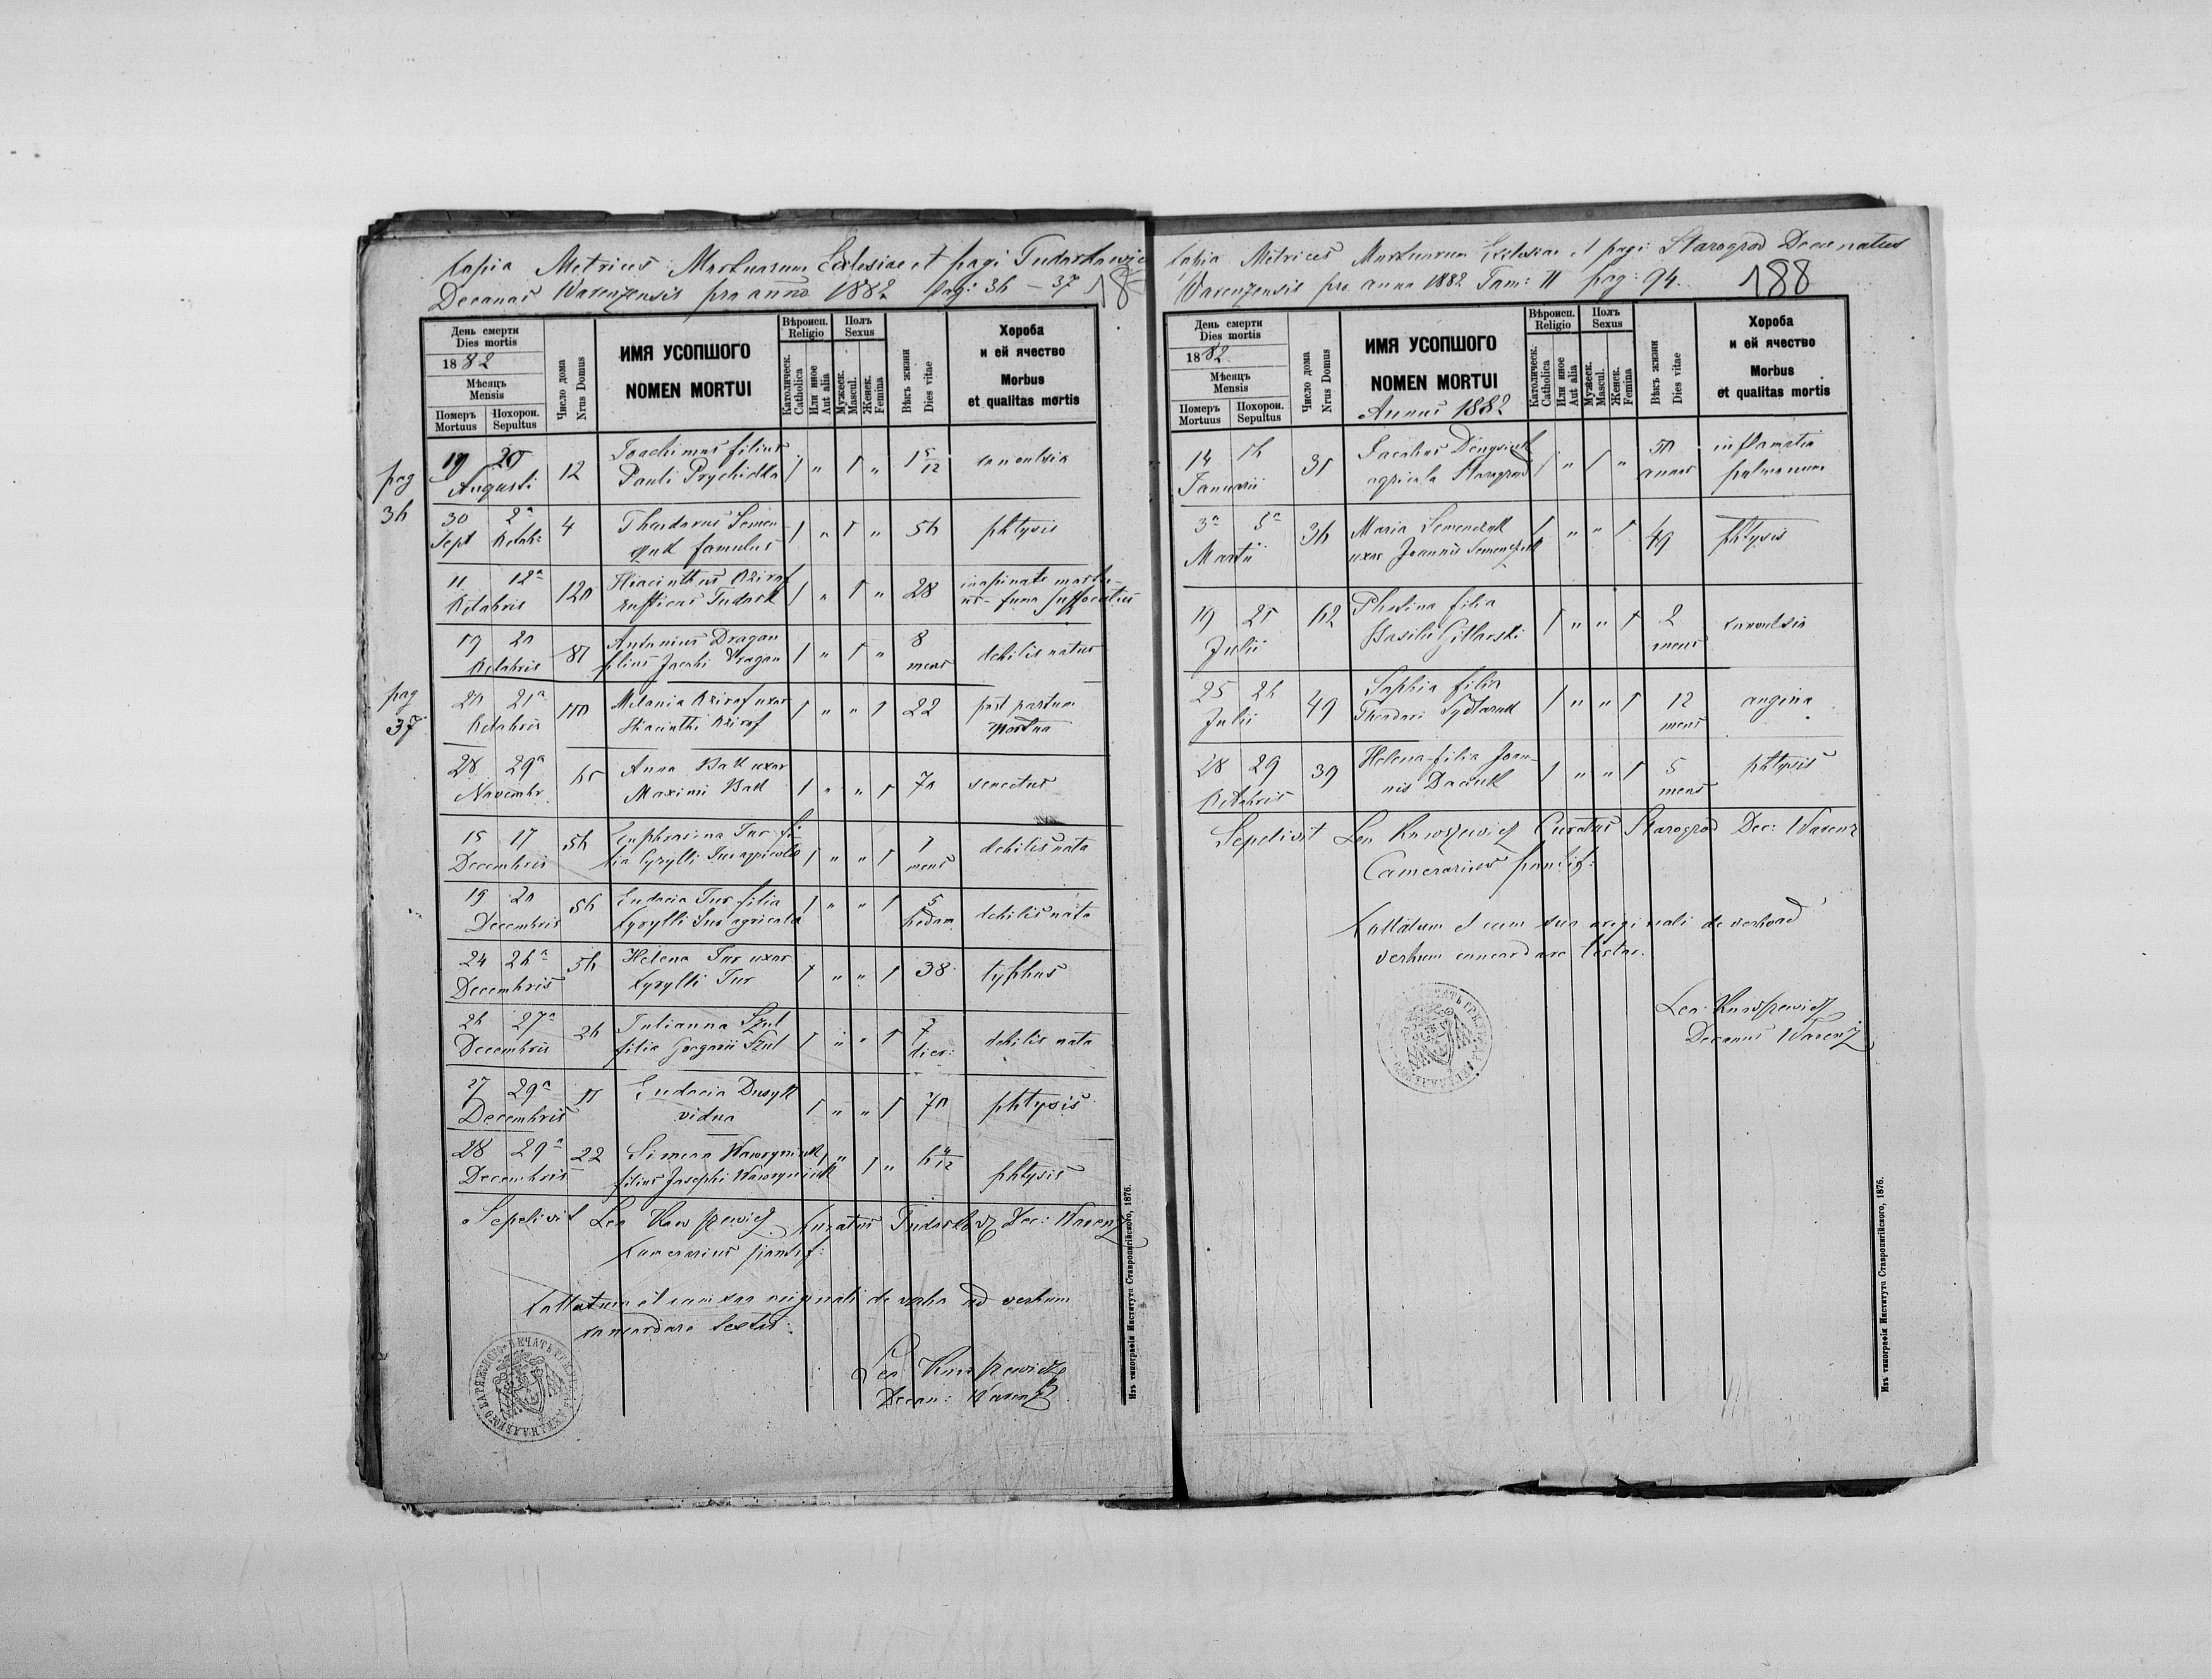 Copia Metrices Mortuorum Ecclesiae et pagi Tudorkowice
Decanat Warenzensis pro anno 1882 pag: 36 – 37
День смерти
Dies mortis
1882
Мѣсяць
Mensis
Померъ
Mortuus
Похорон.
Sepultus
Число дома
Nrus Domus
ИМЯ УСОПШОГО
NOMEN MORTUI
Вѣроисп.
Religio
Католическ.
Catholica
Или иное
Aut alia
Полъ
Sexus
Мужеск.
Mascul.
Женск.
Femina
Вѣкъ жизни
Dies vitae
Хороба
и ей ячество
Morbus
et qualitas mortis
pag
36
19 20 Augusti 12 Joachimus filius
Pauli Prychidko 1 " 1 " 1 5/12 convulsia
30 2a
Sept Octob: 4 Theodorus Semen-
czuk famulus 1 " 1 " 56 phtysis
11 12a
Octobris 120 Hiacinthus
rusticus Tudork 1 " 1 " 28 inopinate mortu-
us – fumo suffocatus
19 20
Octobris 81 Antonius Dragan
filius Jacobi Dragan 1 " 1 " 8
mens debilis natus
pag
37
20 21a
Octobris Melania uxor
Hiacinthi 1 " " 1 22 post partum
mortua
28 29a
Novembr 65 Anna Bak uxor
Maximi Bak 1 " " 1 70 senectus
15 17
Decembris 56 Euphrosina Tur fi-
lia Cyrylli Tur agricolae 1 " " 1 1
mens debilis nata
19 20
Decembris 56 Eudocia Tur filia
Cyrylli Tur agricolae 1 " " 1 5
hedom debilis nata
24 26a
Decembris 56 Helena Tur uxor
Cyrylli Tur 1 " " 1 38 typhus
26 27a
Decembris 26 Julianna Szul
filia Gregorii Szul 1 " " 1 7
dier: debilis nata
27 29a
Decembris 11 Eudocia Dusyk
vidua 1 " " 1 70 phtysis
28 29a
Decembris 22 Simeon Wawryniuk
filius Josephi Wawryniuk 1 " 1 " 6 4/12 phtysis
Sepelivit Leo Kuwszewicz Curatus Tudorkov Dec: Warenz
Camerarius pontif:
Collatum et cum suo originali de verbo ad verbum
concordare testor.
Leo Kunszewicz
Decan: Warenz
Изъ типографіи Института Ставропигійского, 1876.
Copia Metrices Mortuorum Ecclesiae et pagi: Starogrod Decanatus
Warenzensis pro anno 1882 Tom: II pag: 94. 188
День смерти
Dies mortis
1882
Мѣсяць
Mensis
Померъ
Mortuus
Похорон.
Sepultus
Число дома
Nrus Domus
ИМЯ УСОПШОГО
NOMEN MORTUI
Annus 1882
Вѣроисп.
Religio
Католическ.
Catholica
Или иное
Aut alia
Полъ
Sexus
Мужеск.
Mascul.
Женск.
Femina
Вѣкъ жизни
Dies vitae
Хороба
и ей ячество
Morbus
et qualitas mortis
14 16
Januarii 31 Jacobus Denysiuk
agricola Starogrod 1 " 1 " 50
annor inflamatia
pulmonum
3a 5a
Martii 36 Maria Semenczuk
uxor Joannis Semenczuk 1 " " 1 49 phtysis
19 21
Julii 62 Photina filia
Basilii Gitlarski 1 " " 1 2
mens convulsia
25 26
Julii 49 Sophia filia
Theodori 1 " " 1 12
mens angina
28 29
Octobris 39 Helena filia Joan-
nis Daciuk 1 " " 1 5
mens phtysis
Sepelivit Leo Kuwszewicz Curatus Starogrod Dec: Warenz
Camerarius pontif:
Collatum et cum suo originali de verbo ad
verbum concordare testor.
Leo Kunszewicz
Decanus Warenz
Изъ типографіи Института Ставропигійского, 1876.